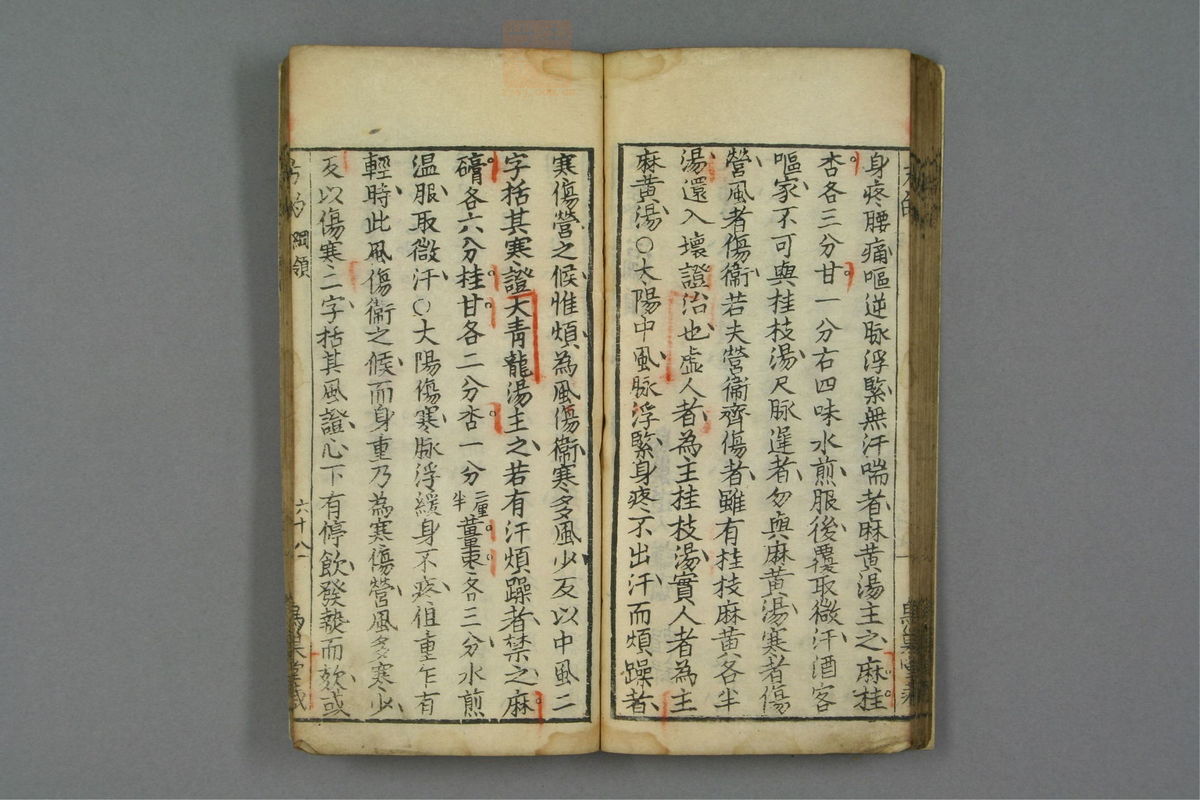 身疼腰痛嘔逆脉浮緊無汗喘者麻黄湯主之麻桂
杏各三分甘一分右四味水煎服後覆取微汗酒客
嘔家不可與桂枝湯尺脉遲者勿與麻黄湯寒者傷
營風者傷衞若夫營衞齊傷者雖有桂枝麻黄各半
湯還入壞證治也虛人者為主桂枝湯實人者為主
麻黄湯○太陽中風脉浮緊身疼不出汗而煩躁者
寒傷營之候惟煩為風傷衞寒多風少反以中風二
字括其寒證大青龍湯主之若有汗煩躁者禁之麻
膏各六分桂甘各二分杏一分二厘半薑棗各三分水煎
温服取微汗○太陽傷寒脉浮緩身不疼但重乍有
輕時此風傷衞之候而身重乃為寒傷營風多寒少
反以傷寒二字括其風證心下有停飲發熱而欬或
綱領
六十八